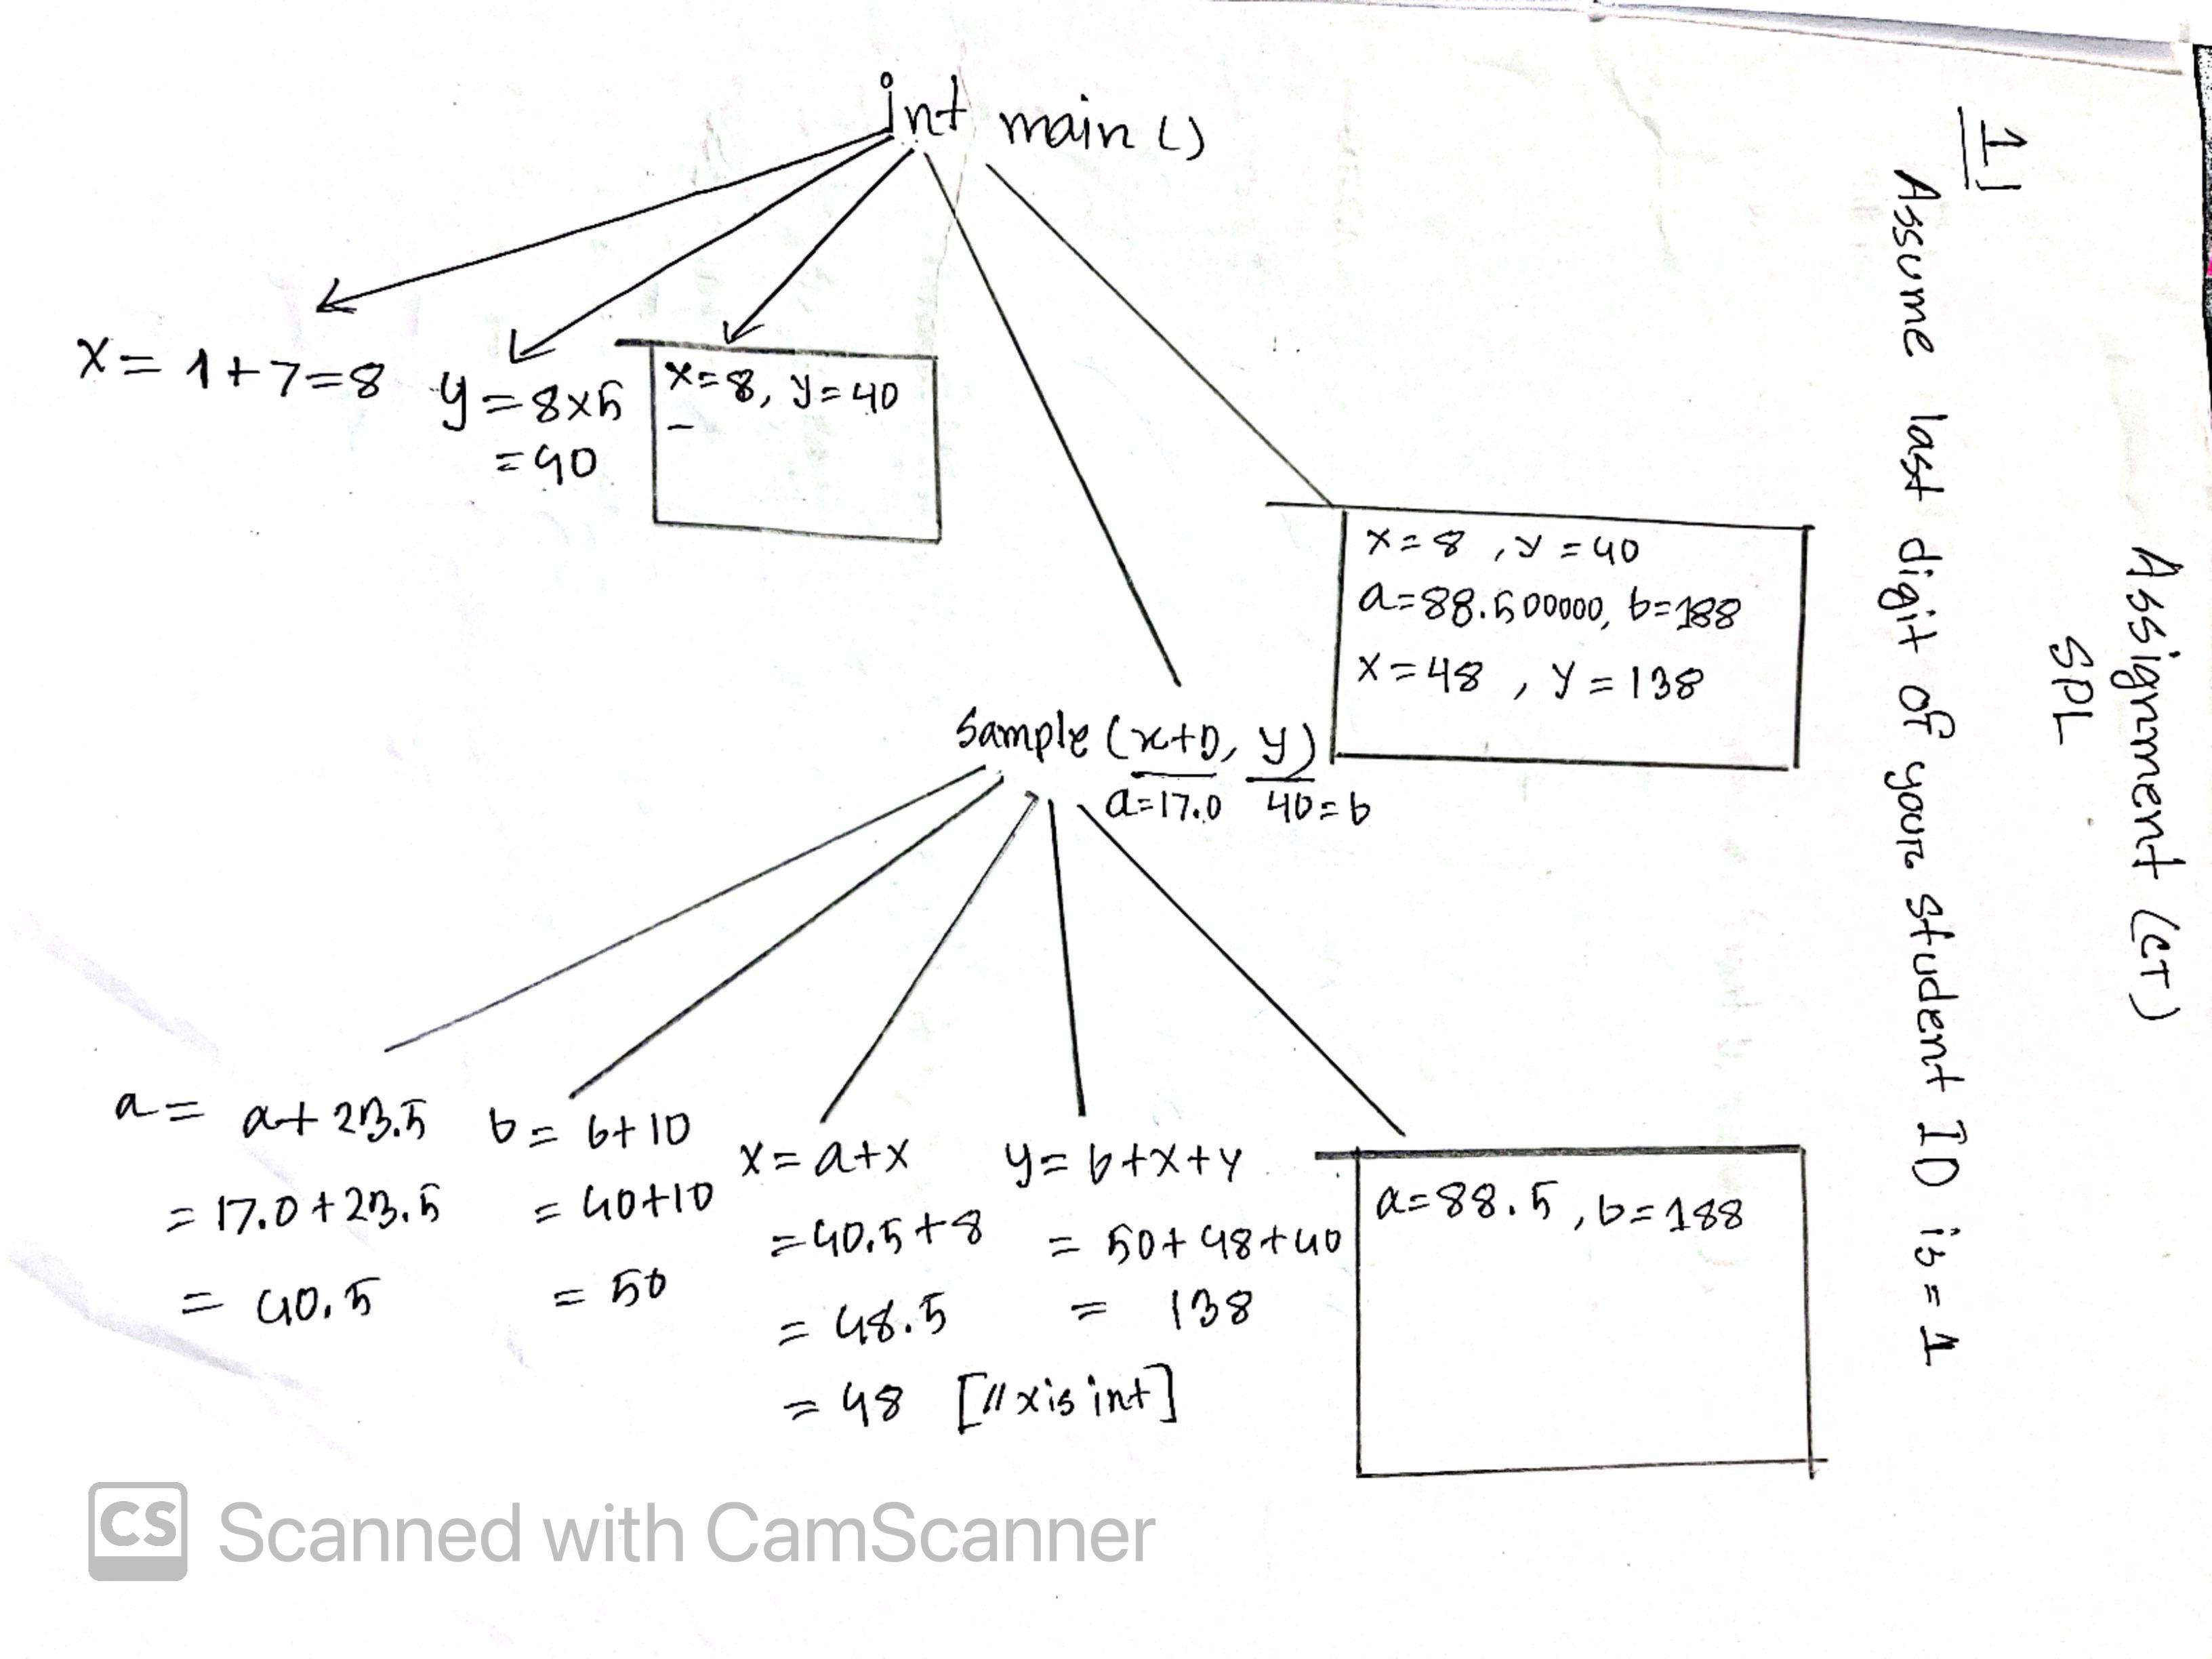 Assignment (CT)
SPL
1)
Assume last digit of your student ID is = 1
int main ()
x = 1+7=8
y = 8x5
= 40
x=8, y=40
-
x=8, y=40
a=88.500000, b=188
x=48, y=138
Sample (x+D, y)
a=17.0 40=b
a = a+23.5
= 17.0+23.5
= 40.5
b = b+10
= 40+10
= 50
x = a+x
= 40.5+8
= 48.5
= 48 [// x is int]
y = b+x+y
= 50+48+40
= 138
a=88.5, b=188
CS Scanned with CamScanner